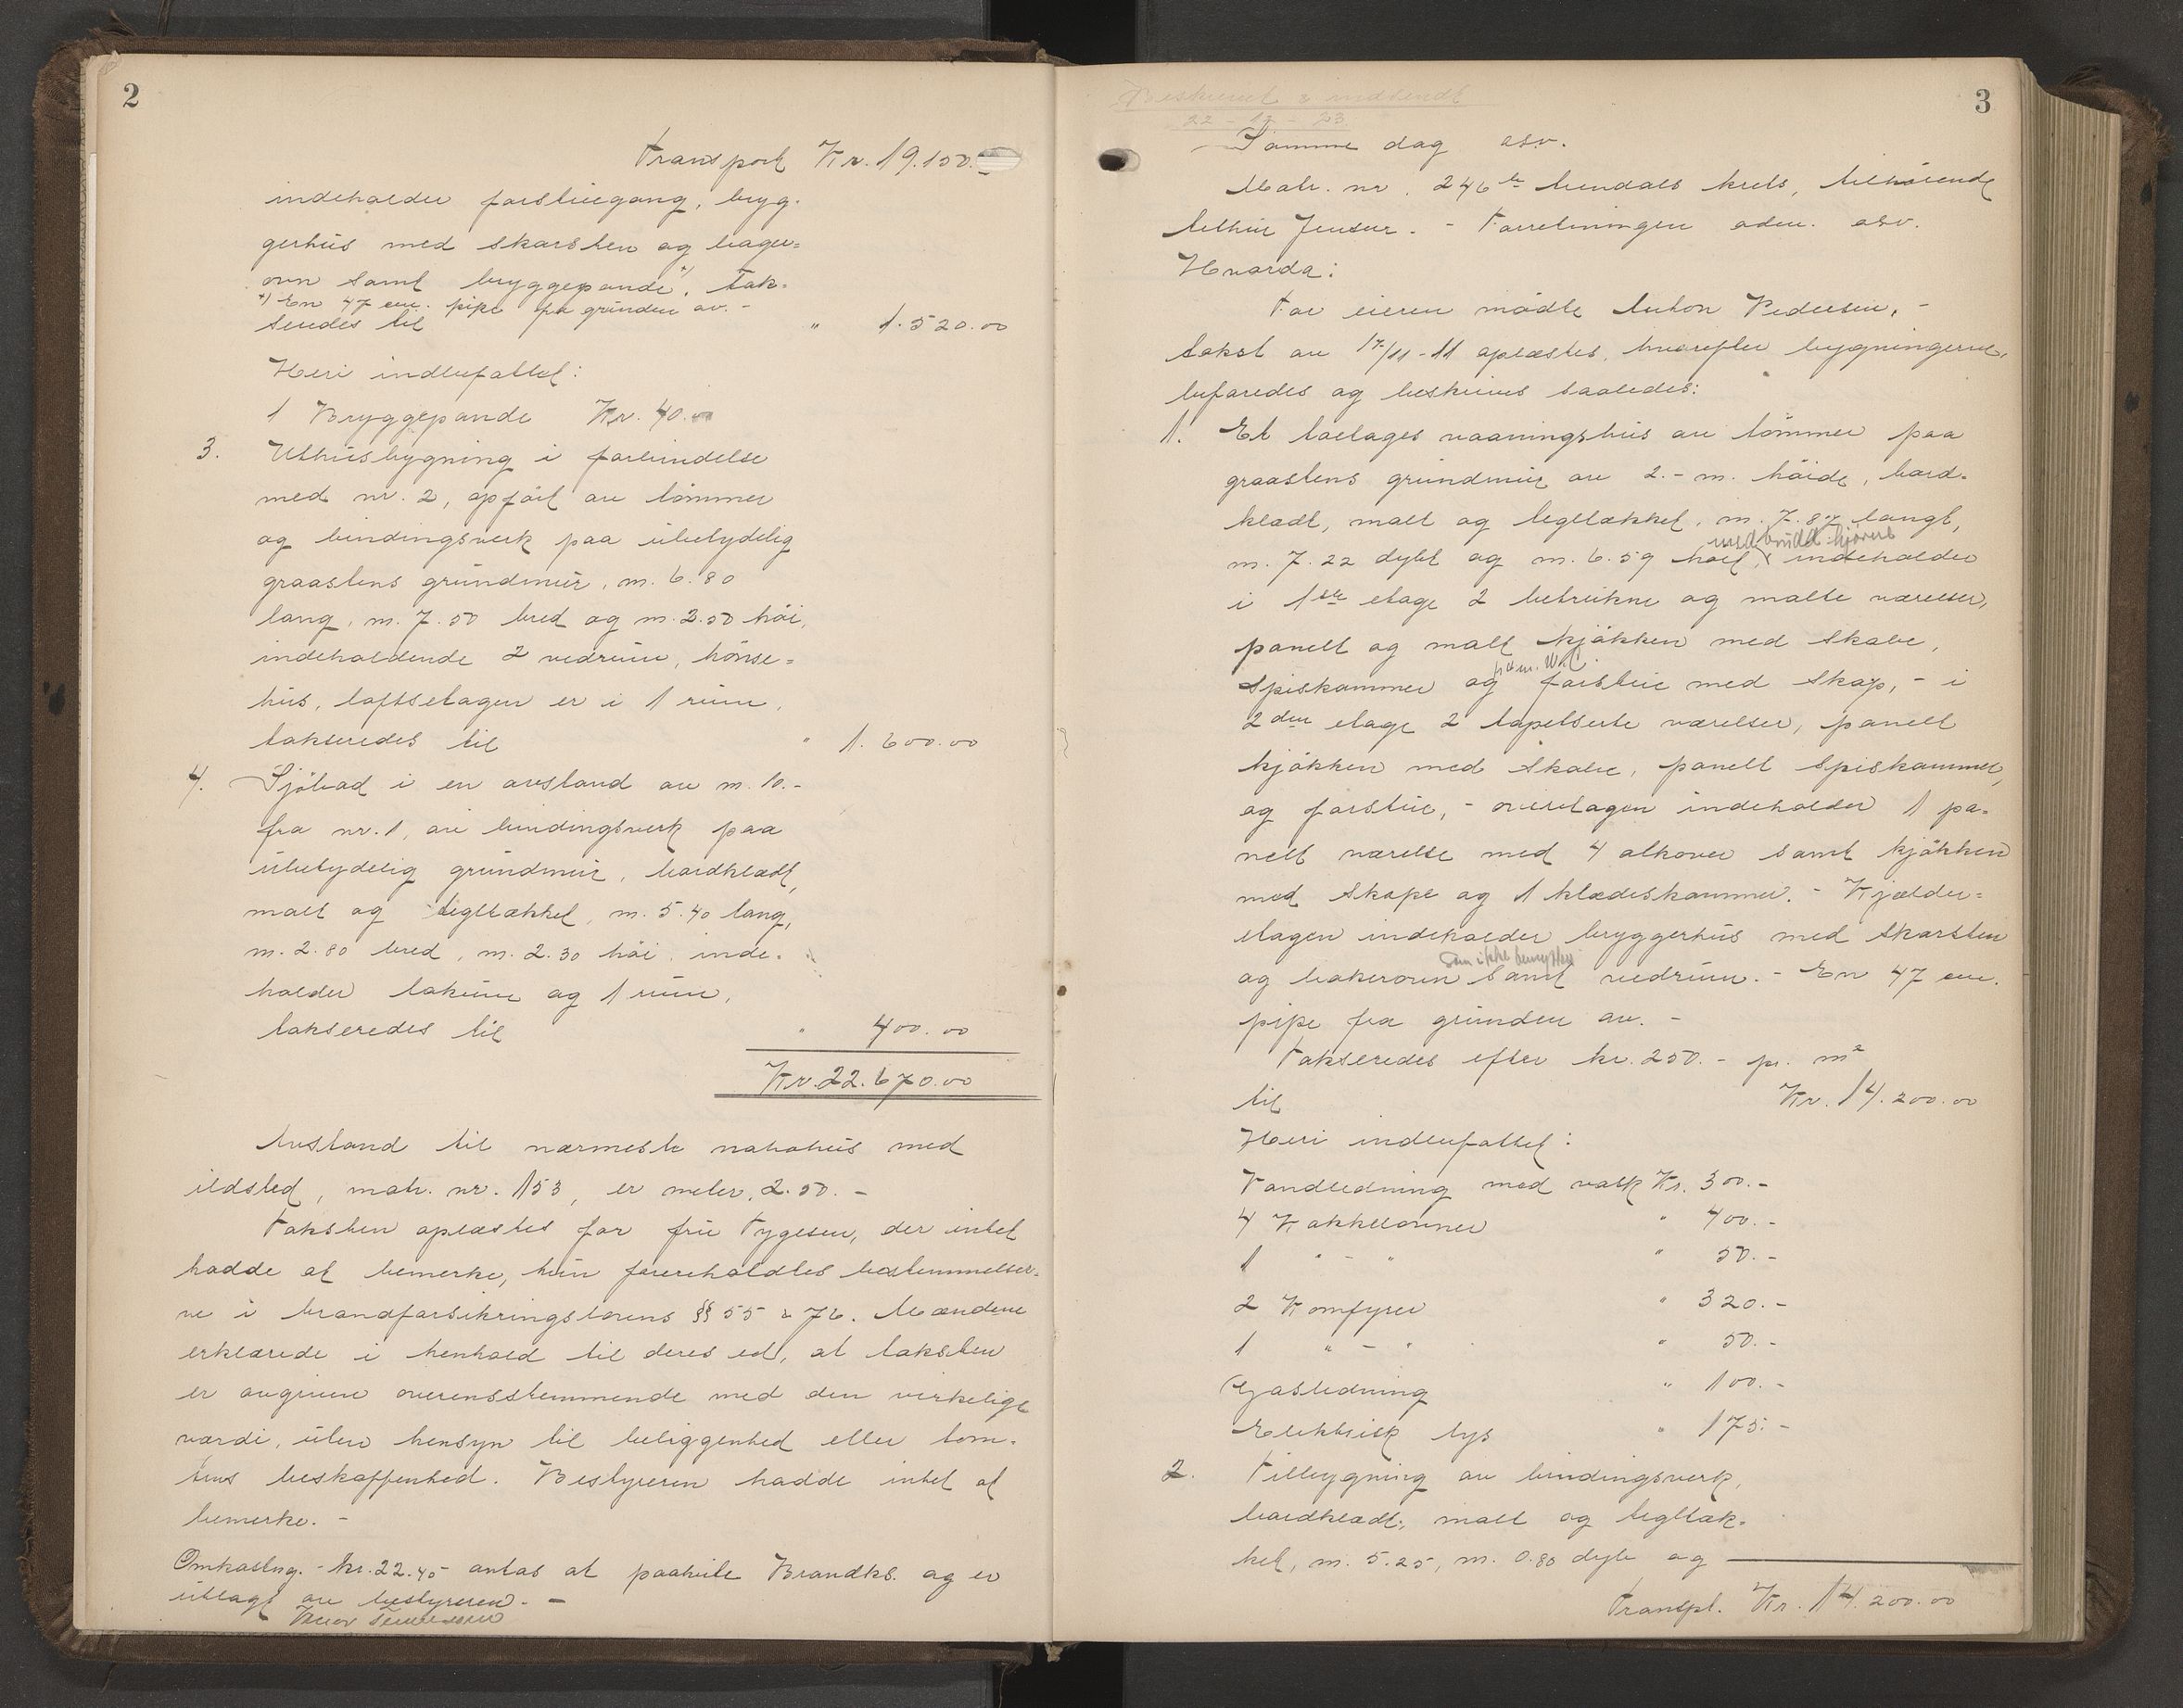 2
Transport Kr. 19.150.-
indeholder forstuegang, bryg-
gerhus med skorsten og bager-
ovn samt bryggepande, *) tak-
*) En 47 cm. pipe fra grunden av. -
seredes til " 1.520.00
Heri indbefattet:
1 Bryggepande Kr. 40.00
3. Uthusbygning i forbindelse
med nr. 2, opført av tømmer
og bindingsverk paa ubetydelig
graastens grundmur, m. 6.80
lang, m. 7.50 bred og m. 3.50 høi,
indeholdende 2 vedrum, hønse-
hus, loftsetagen er i 1 rum,
takseredes til " 1.600.00
4. Sjøbad i en avstand av m. 10.-
fra nr. 1, av bindingsverk paa
ubetydelig grundmur, bordklædt,
malt og tegltækket, m. 5.40 lang,
m. 2.80 bred, m. 2.30 høi, inde-
holder lokum og 1 rum,
takseredes til " 400.00
Kr. 22.670.00
Avstand til nærmeste nabohus med
ildsted, matr. nr. 153, er meter 2.50. -
Taksten oplæstes for fru Tygesen, der intet
hadde at bemerke, hun foreholdtes bestemmelser-
ne i brandforsikringslovens §§ 55 & 76. Mændene
erklærede i henhold til deres ed, at taksten
er avgiven overensstemmende med den virkelige
værdi, uten hensyn til beliggenhed eller tom-
tens beskaffenhed. Bestyreren hadde intet at
bemerke. -
Omkostng. - kr. 22.40 antas at paahvile Brandks. og er
utlagt av bestyreren. -
3
Beskrevet & indsendt
22 - 12 - 23.
Samme dag osv.
Matr. nr. 246 b Arendals kreds, tilhørende
Jensen. - Forretningen aden. osv.
Hvorda:
For eieren mødte Anton Pedersen, -
takst av 17/11-11 oplæstes, hvorefter bygningerne
befaredes og beskrives saaledes:
1. Et toetages vaaningshus av tømmer paa
graastens grundmur av 2.- m. høide, bord-
klædt, malt og tegltækket, m. 7.87 langt,
m. 7.22 dypt og m. 6.59 høit, indeholder
i 1ste etage 2 betrukne og malte værelser,
panelt og malt kjøkken med skabe,
spiskammer og forstue med skap, - i
2den etage 2 tapetserte værelser, panelt
kjøkken med skabe, panelt spiskammer,
og forstue, - øverstetagen indeholder 1 pa-
nelt værelse med 4 alkover samt kjøkken
med skape og 1 klædeskammer. - Kjælder-
etagen indeholder bryggerhus med skorsten
som ikke benyttes
og bakerovn samt vedrum. - En 47 cm.
pipe fra grunden av. -
Takseredes efter kr. 250.- pr. m²
til Kr. 14.200.00
Heri indbefattet:
Vandledning med vask Kr. 300.-
4 Kakkelovner " 400.-
1 " - " " 50.-
2 Komfyrer " 320.-
1 " - " " 50.-
Gasledning " 100.-
Elektrisk lys " 175.-
2. Tilbygning av bindingsverk,
bordklædt, malt og tegltæk-
ket, m. 5.25, m. 0.80 dyb og
Transpt. Kr. 14.200.00